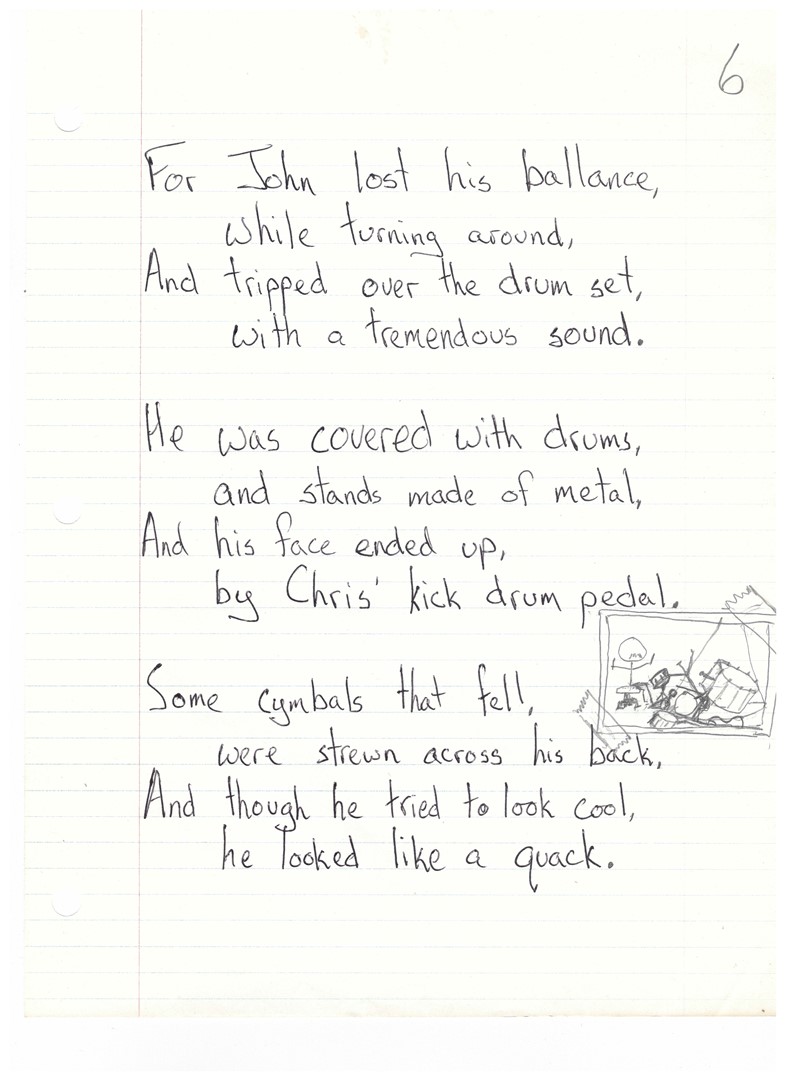 6
For John lost his ballance,
while turning around,
And tripped over the drum set,
with a tremendous sound.
He was covered with drums,
and stands made of metal,
And his face ended up,
by Chris' kick drum pedal.
Some cymbals that fell,
were strewn across his back,
And though he tried to look cool,
he looked like a quack.